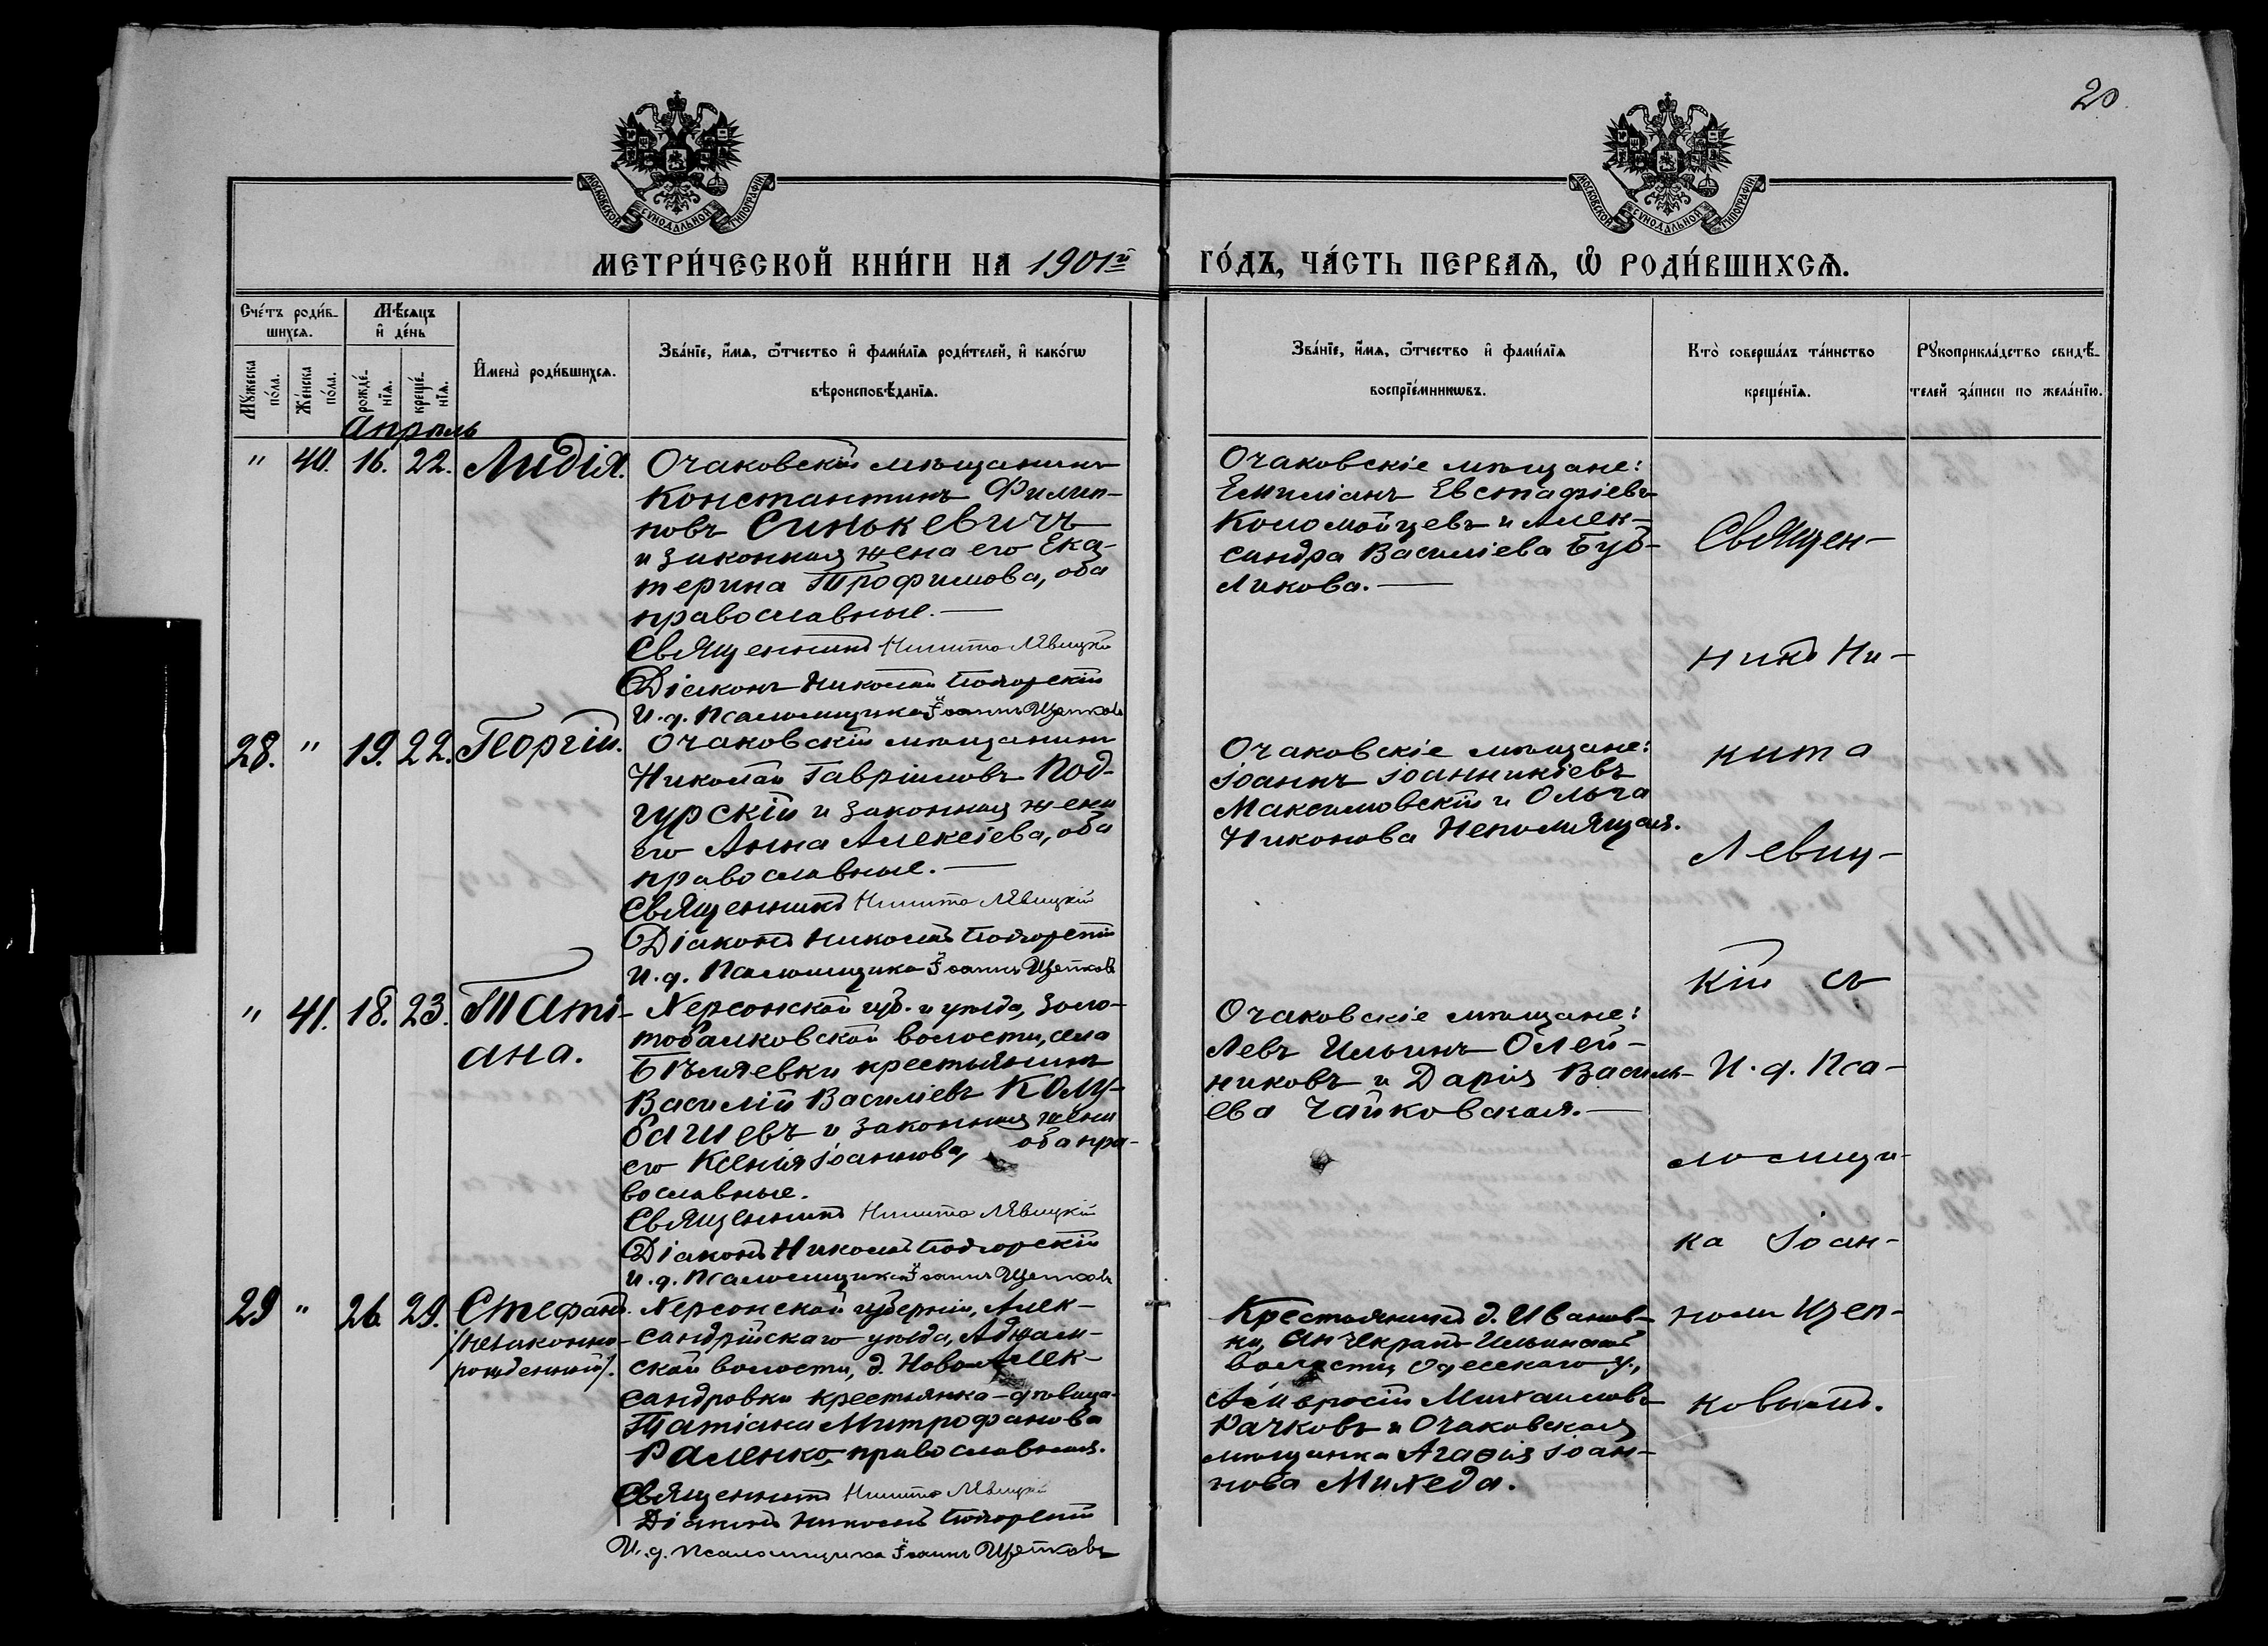 20
МОСКОВСКОЙ СѴНОДАЛЬНОЙ ТИПОГРАФІИ
МОСКОВСКОЙ СѴНОДАЛЬНОЙ ТИПОГРАФІИ
МЕТРИ́ЧЕСКОЙ КНИ́ГИ НА 1901й ГО́ДЪ, ЧА́СТЬ ПЕРВАѦ, Ѡ҆ РОДИ́ВШИХСѦ.
Сче́тъ роди́в-
шихсѧ.
Мѣ́сѧцъ
и҆ де́нь
Мꙋжеска
по́ла.
Же́нска
по́ла.
рожде́-
нїѧ.
креще́-
нїѧ.
И҆мена̀ роди́вшихсѧ.
Зва́нїе, и҆́мѧ, ѻ҆́тчество и҆ фами́лїѧ роди́телей, и҆ како́гѡ
вѣроисповѣ́данїѧ.
Зва́нїе, и҆́мѧ, ѻ҆́тчество и҆ фами́лїѧ
воспрїе́мникѡвъ.
Кто̀ соверша́лъ та́инство
креще́нїѧ.
Рꙋкоприкла́дство свидѣ́-
телей за́писи по жела́нїю.
Апрѣль
" 40. 16. 22. Лидія.
Очаковскій мѣщанинъ
Константинъ Филип-
повъ Синькевичъ
и законная жена его Ека-
терина Трофимова, оба
православные.
Священникъ Никита Лѣвицкій
Діаконъ Николай Погорскій
И. д. Псаломщика Іоаннъ Щепковъ
Очаковскіе мѣщане:
Емиліанъ Евстафіевъ
Коломойцевъ и Алек-
сандра Василіева Буб-
ликова.
28. " 19. 22. Георгій.
Очаковскій мѣщанинъ
Николай Гавріиловъ Под-
гурскій и законная жена
его Анна Алексіева, оба
православные.
Священникъ Никита Лѣвицкій
Діаконъ Николай Погорскій
И. д. Псаломщика Іоаннъ Щепковъ
Очаковскіе мѣщане:
Іоаннъ Іоанникіевъ
Максимовскій и Ольга
Никонова Непомнящая.
" 41. 18. 23. Таті-
ана.
Херсонской губ. и уѣзда, Золо-
тобалковской волости, села
Бѣляевки крестьянинъ
Василій Василіевъ Колу-
баевъ и законная жена
его Ксенія Іоаннова, оба пра-
вославные.
Священникъ Никита Лѣвицкій
Діаконъ Николай Погорскій
И. д. Псаломщика Іоаннъ Щепковъ
Очаковскіе мѣщане:
Левъ Ильинъ Олей-
никовъ и Дарія Василь-
ева Чайковская.
29 " 26. 29. Стефанъ.
/незаконно-
рожденный/.
Херсонской губерніи, Алек-
сандрійскаго уѣзда, Аджам-
ской волости, д. Ново-Алек-
сандровки крестьянка-дѣвица
Татіана Митрофанова
Раленко, православная.
Священникъ Никита Лѣвицкій
Діаконъ Николай Погорскій
И. д. Псаломщика Іоаннъ Щепковъ
Крестьянинъ д. Иванов-
ки, Анчекракъ-Ильинской
волости, Одесскаго у.,
Амвросій Михаиловъ
Рачковъ и Очаковская
мѣщанка Агаѳія Іоан-
нова Михеда.
Священ-
никъ Ни-
кита
Левиц-
кій съ
И. д. Пса-
ломщи-
ка Іоан-
номъ Щеп-
ковымъ.